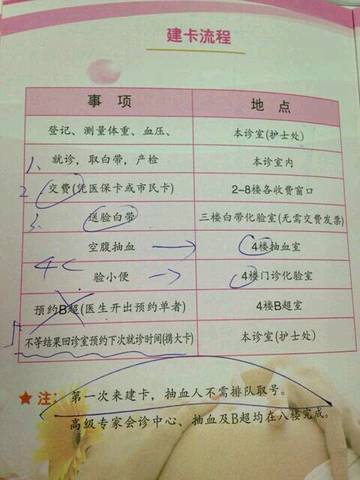 建卡流程
事 项 地 点
登记、测量体重、血压、 本诊室(护士处)
1、就诊，取白带，产检 本诊室内
2 交费(凭医保卡或市民卡) 2-8楼各收费窗口
3、送验白带 三楼白带化验室(无需交费发票)
空腹抽血 4楼抽血室
4 验小便 4楼门诊化验室
预约B超(医生开出预约单者) 4楼B超室
不等结果回诊室预约下次就诊时间(携大卡) 本诊室(护士处)
★ 注: 第一次来建卡，抽血人不需排队取号。
高级专家会诊中心、抽血及B超均在八楼完成。